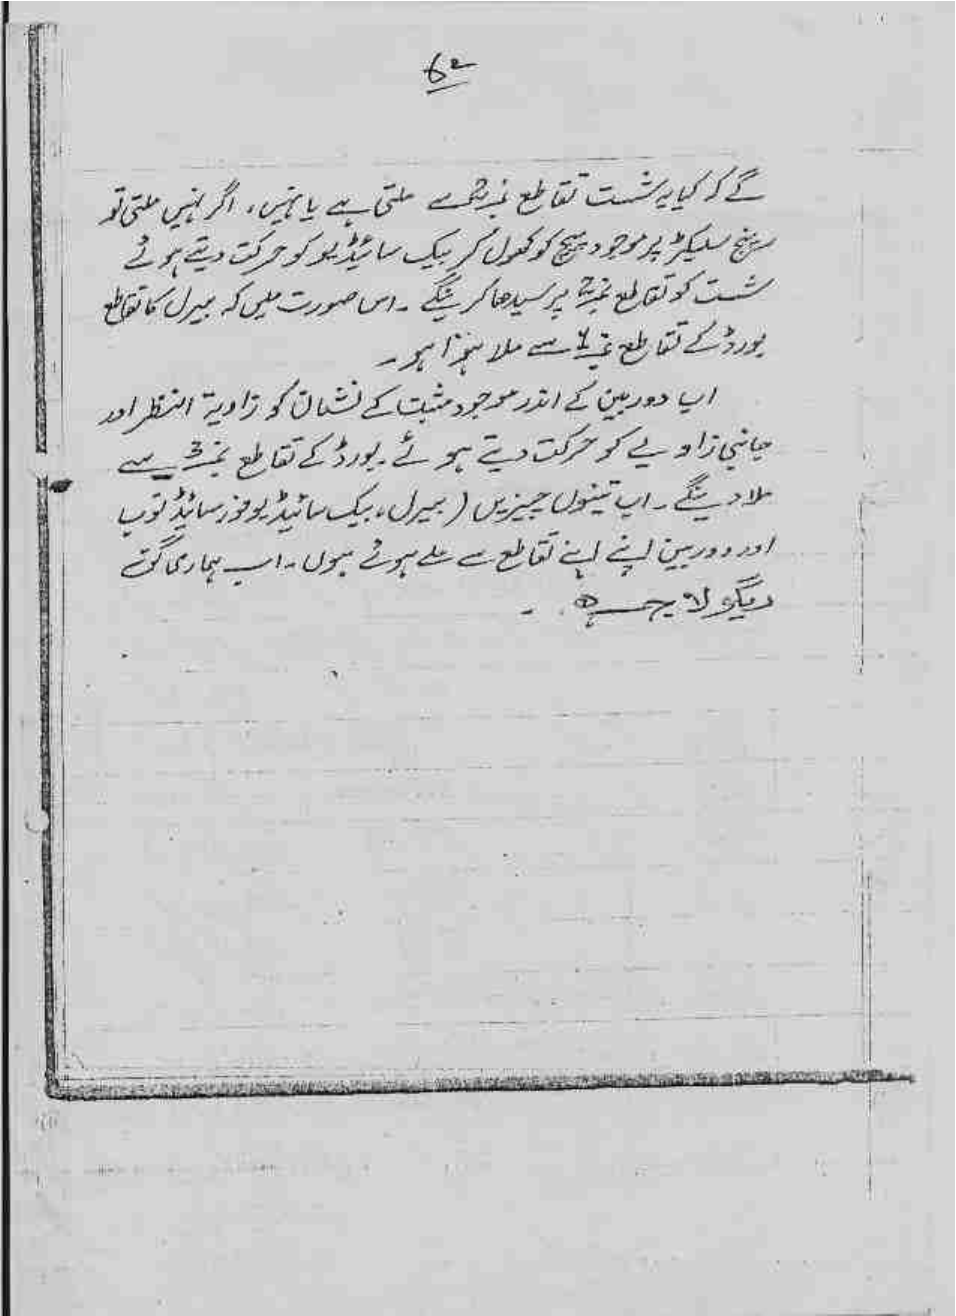 62
گے کہ کیا یہ شست تقاطع نمبر 3 سے ملتی ہے یا نہیں، اگر نہیں ملتی تو
رینج سلیکٹر پر موجود پیچ کو کھول کر بیک سائیڈ یو کو حرکت دیتے ہوئے
شست کو تقاطع نمبر پر سیدھا کرینگے ۔ اس صورت میں کہ بیرل کا تقاطع
بورڈ کے تقاطع نمبر 1 سے ملا ہوا ہو ۔
اب دوربین کے اندر موجود مثبت کے نشان کو زاویۃ النظر اور
جانبی زاویے کو حرکت دیتے ہوئے بورڈ کے تقاطع نمبر سے
ملا دینگے ۔ اب تینوں چیزیں (بیرل، بیک سائیڈ یو فور سائیڈ توپ
اور دوربین اپنے اپنے تقاطع سے ملے ہوئے ہوں ۔ اب ہماری گن
ریگولا ۔